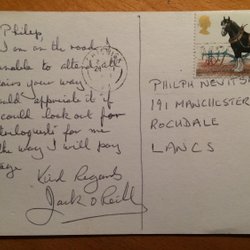 Philip,
I am on the road &
unable to attend all
fairs your way
would appreciate it if
could look out for
for me
the way I will pay
Kind Regards
Jack O'Reill
PHILPH NEVITS
191 MANCHESTER
ROCHDALE
LANCS